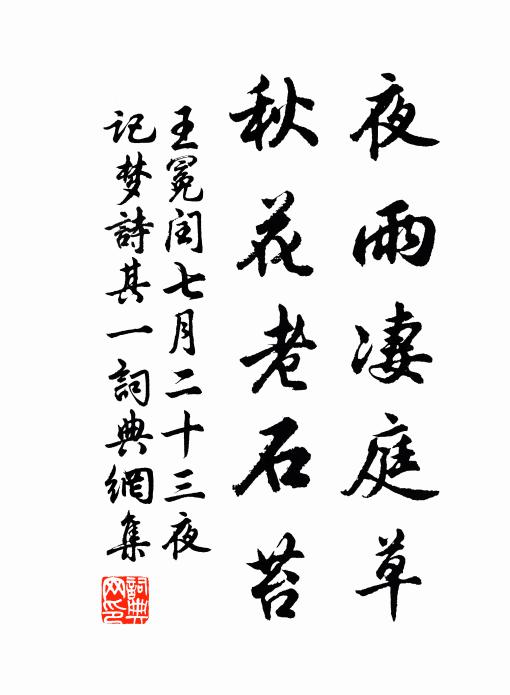 夜雨凄庭草
秋花老石苔
王冕闰七月二十三夜
记梦詩其一詞典網集
詞典网印